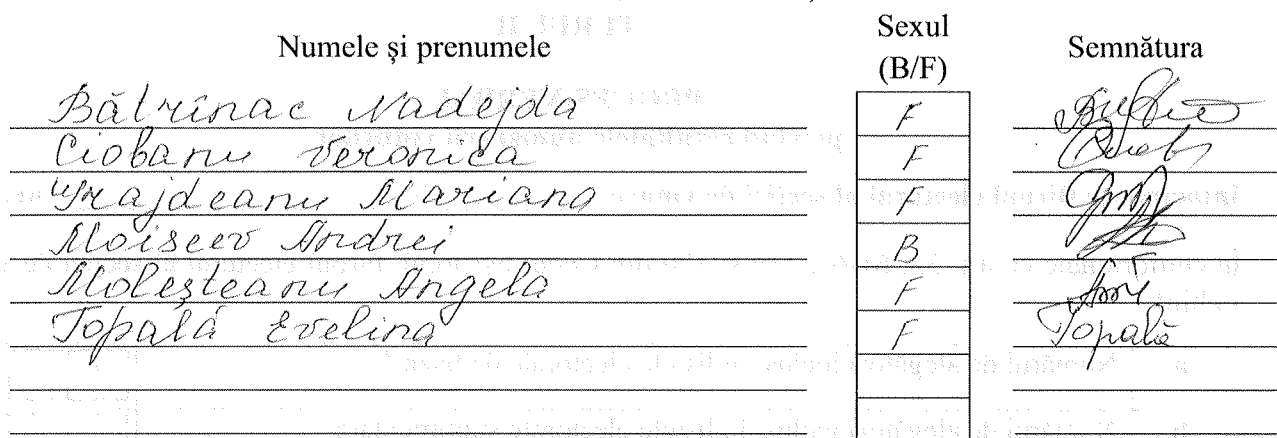 Numele și prenumele Sexul (B/F) Semnătura
Bălrînac Nadejda F
Ciobanu Veronica F
Grajdeanu Mariana F
Moiseev Andrei B
Moleșteanu Angela F
Topală Evelina F Topală